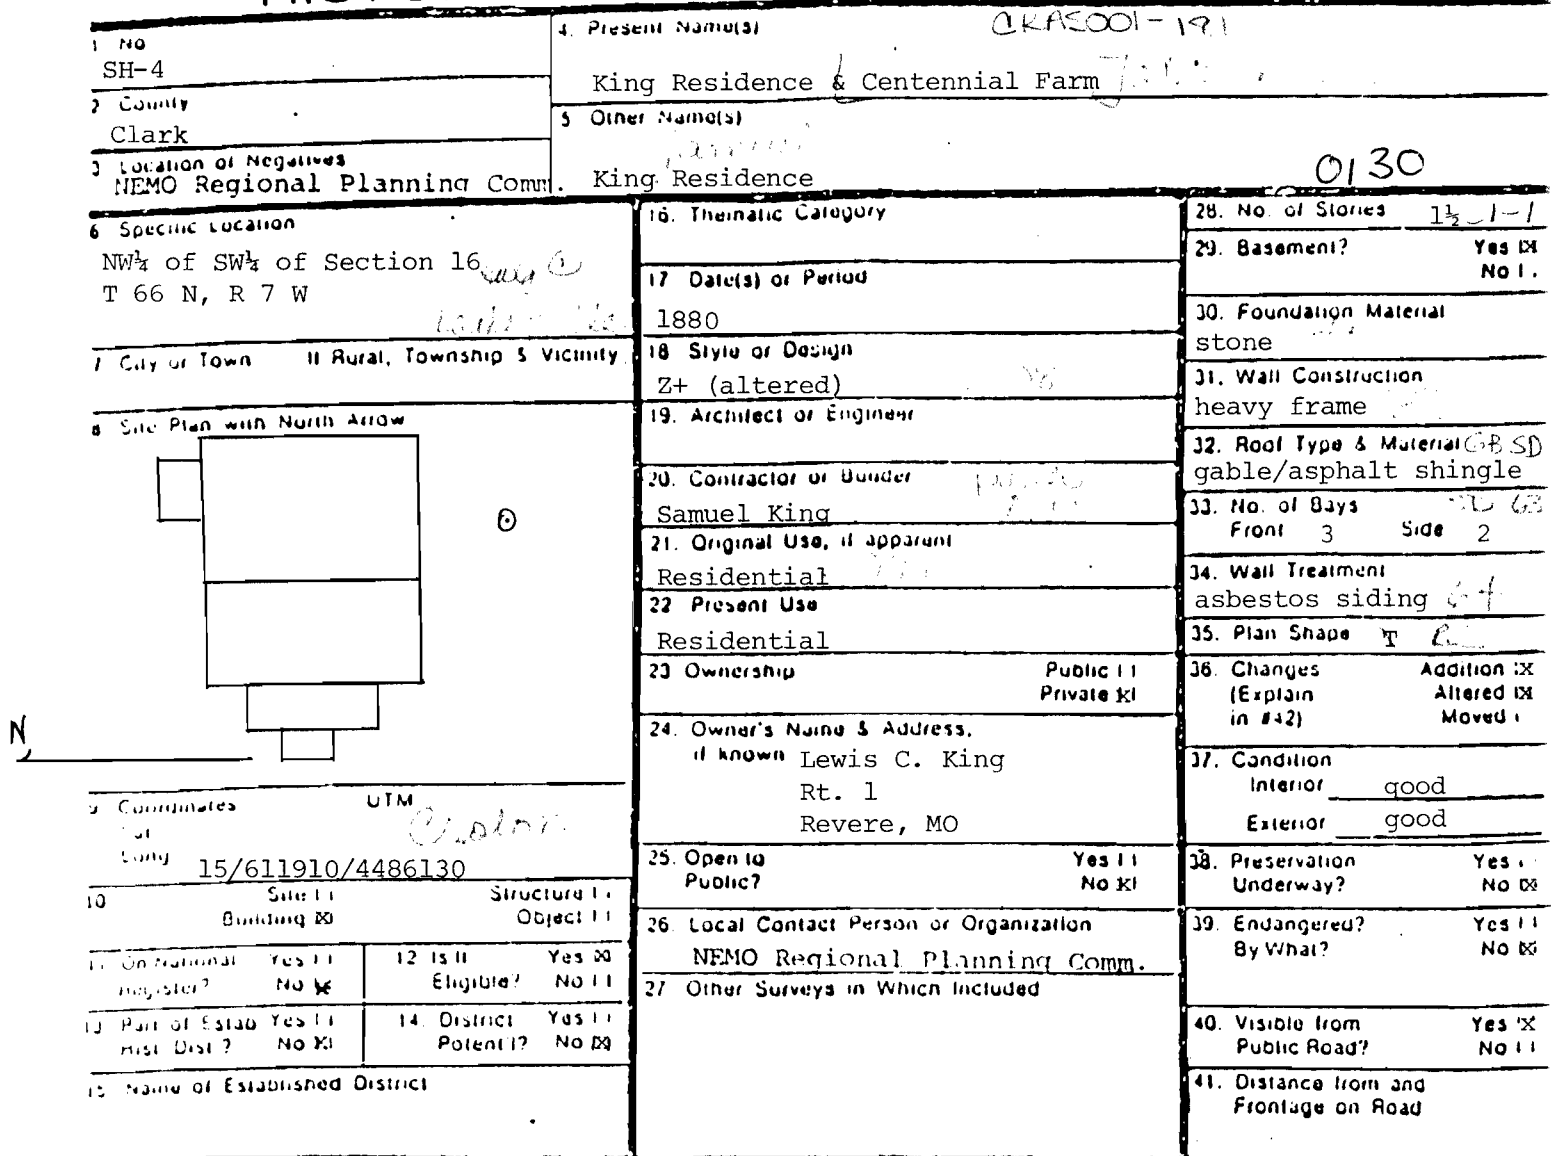 1 No
SH-4
2 County
Clark
3 Location of Negatives
NEMO Regional Planning Comm.
4. Present Name(s)
CKAS001-191
King Residence & Centennial Farm
5 Other Name(s)
King Residence
0130
6 Specific Location
NW¼ of SW¼ of Section 16
T 66 N, R 7 W
7 City or Town If Rural, Township & Vicinity
8 Site Plan with North Arrow
N
9 Coordinates UTM
Lat
Long
15/611910/4486130
10 Site Structure
Building [X] Object
11 On National Register? Yes No [X]
12 Is It Eligible? Yes [X] No
13 Part of Estab Hist Dist? Yes No [X]
14. District Potent'l? Yes No [X]
15 Name of Established District
16. Thematic Category
17 Date(s) or Period
1880
18 Style or Design
Z+ (altered)
19. Architect or Engineer
20. Contractor or Builder
Samuel King
21. Original Use, if apparent
Residential
22 Present Use
Residential
23 Ownership Public
Private [X]
24. Owner's Name & Address,
if known Lewis C. King
Rt. 1
Revere, MO
25. Open to Yes
Public? No [X]
26. Local Contact Person or Organization
NEMO Regional Planning Comm.
27 Other Surveys in Which Included
28. No. of Stories 1½-1-1
29. Basement? Yes [X]
No
30. Foundation Material
stone
31. Wall Construction
heavy frame
32. Roof Type & Material GB SD
gable/asphalt shingle
33. No. of Bays
Front 3 Side 2
34. Wall Treatment
asbestos siding
35. Plan Shape T
36. Changes Addition [X]
(Explain Altered [X]
in #42) Moved
37. Condition
Interior good
Exterior good
38. Preservation Yes
Underway? No [X]
39. Endangered? Yes
By What? No [X]
40. Visible from Yes [X]
Public Road? No
41. Distance from and
Frontage on Road